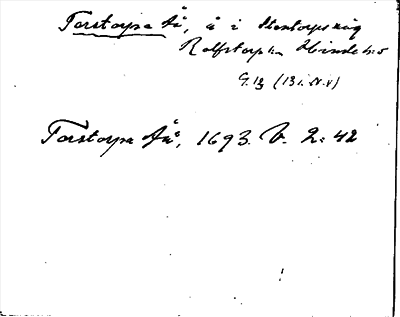 Torstorpa Å, å i Stentorps äng
Rolfstorp sn Himle hd
G. 13 (13 i. N.v)
Torstorpa Åå, 1693. V. 2: 42